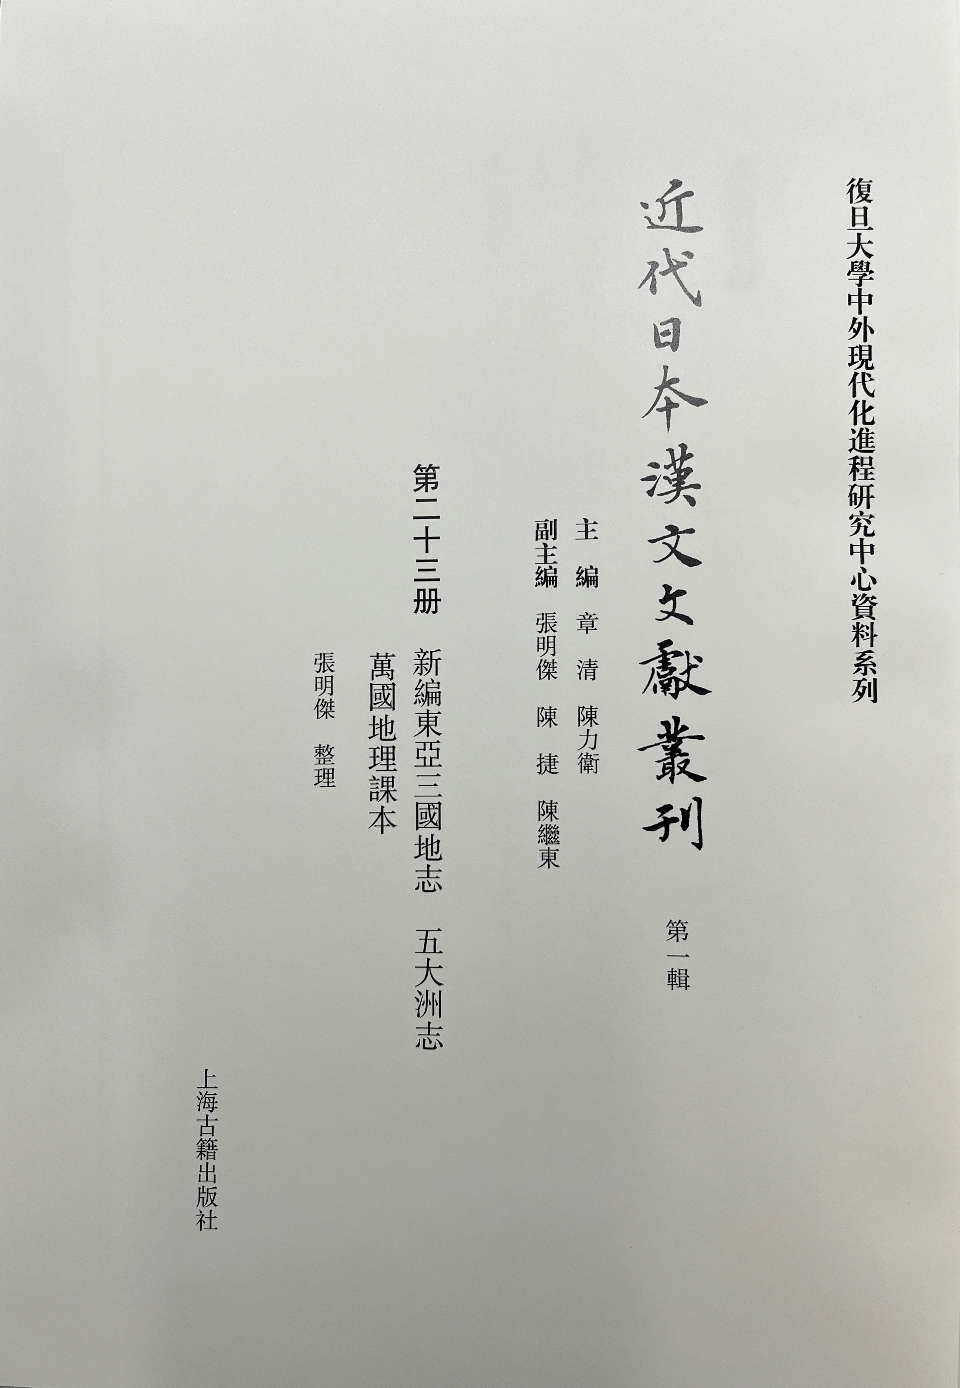 復旦大學中外現代化進程研究中心資料系列
近代日本漢文文獻叢刊 第一輯
主編 章清 陳力衛
副主編 張明傑 陳捷 陳繼東
第二十三册 新編東亞三國地志 五大洲志
萬國地理課本
張明傑 整理
上海古籍出版社